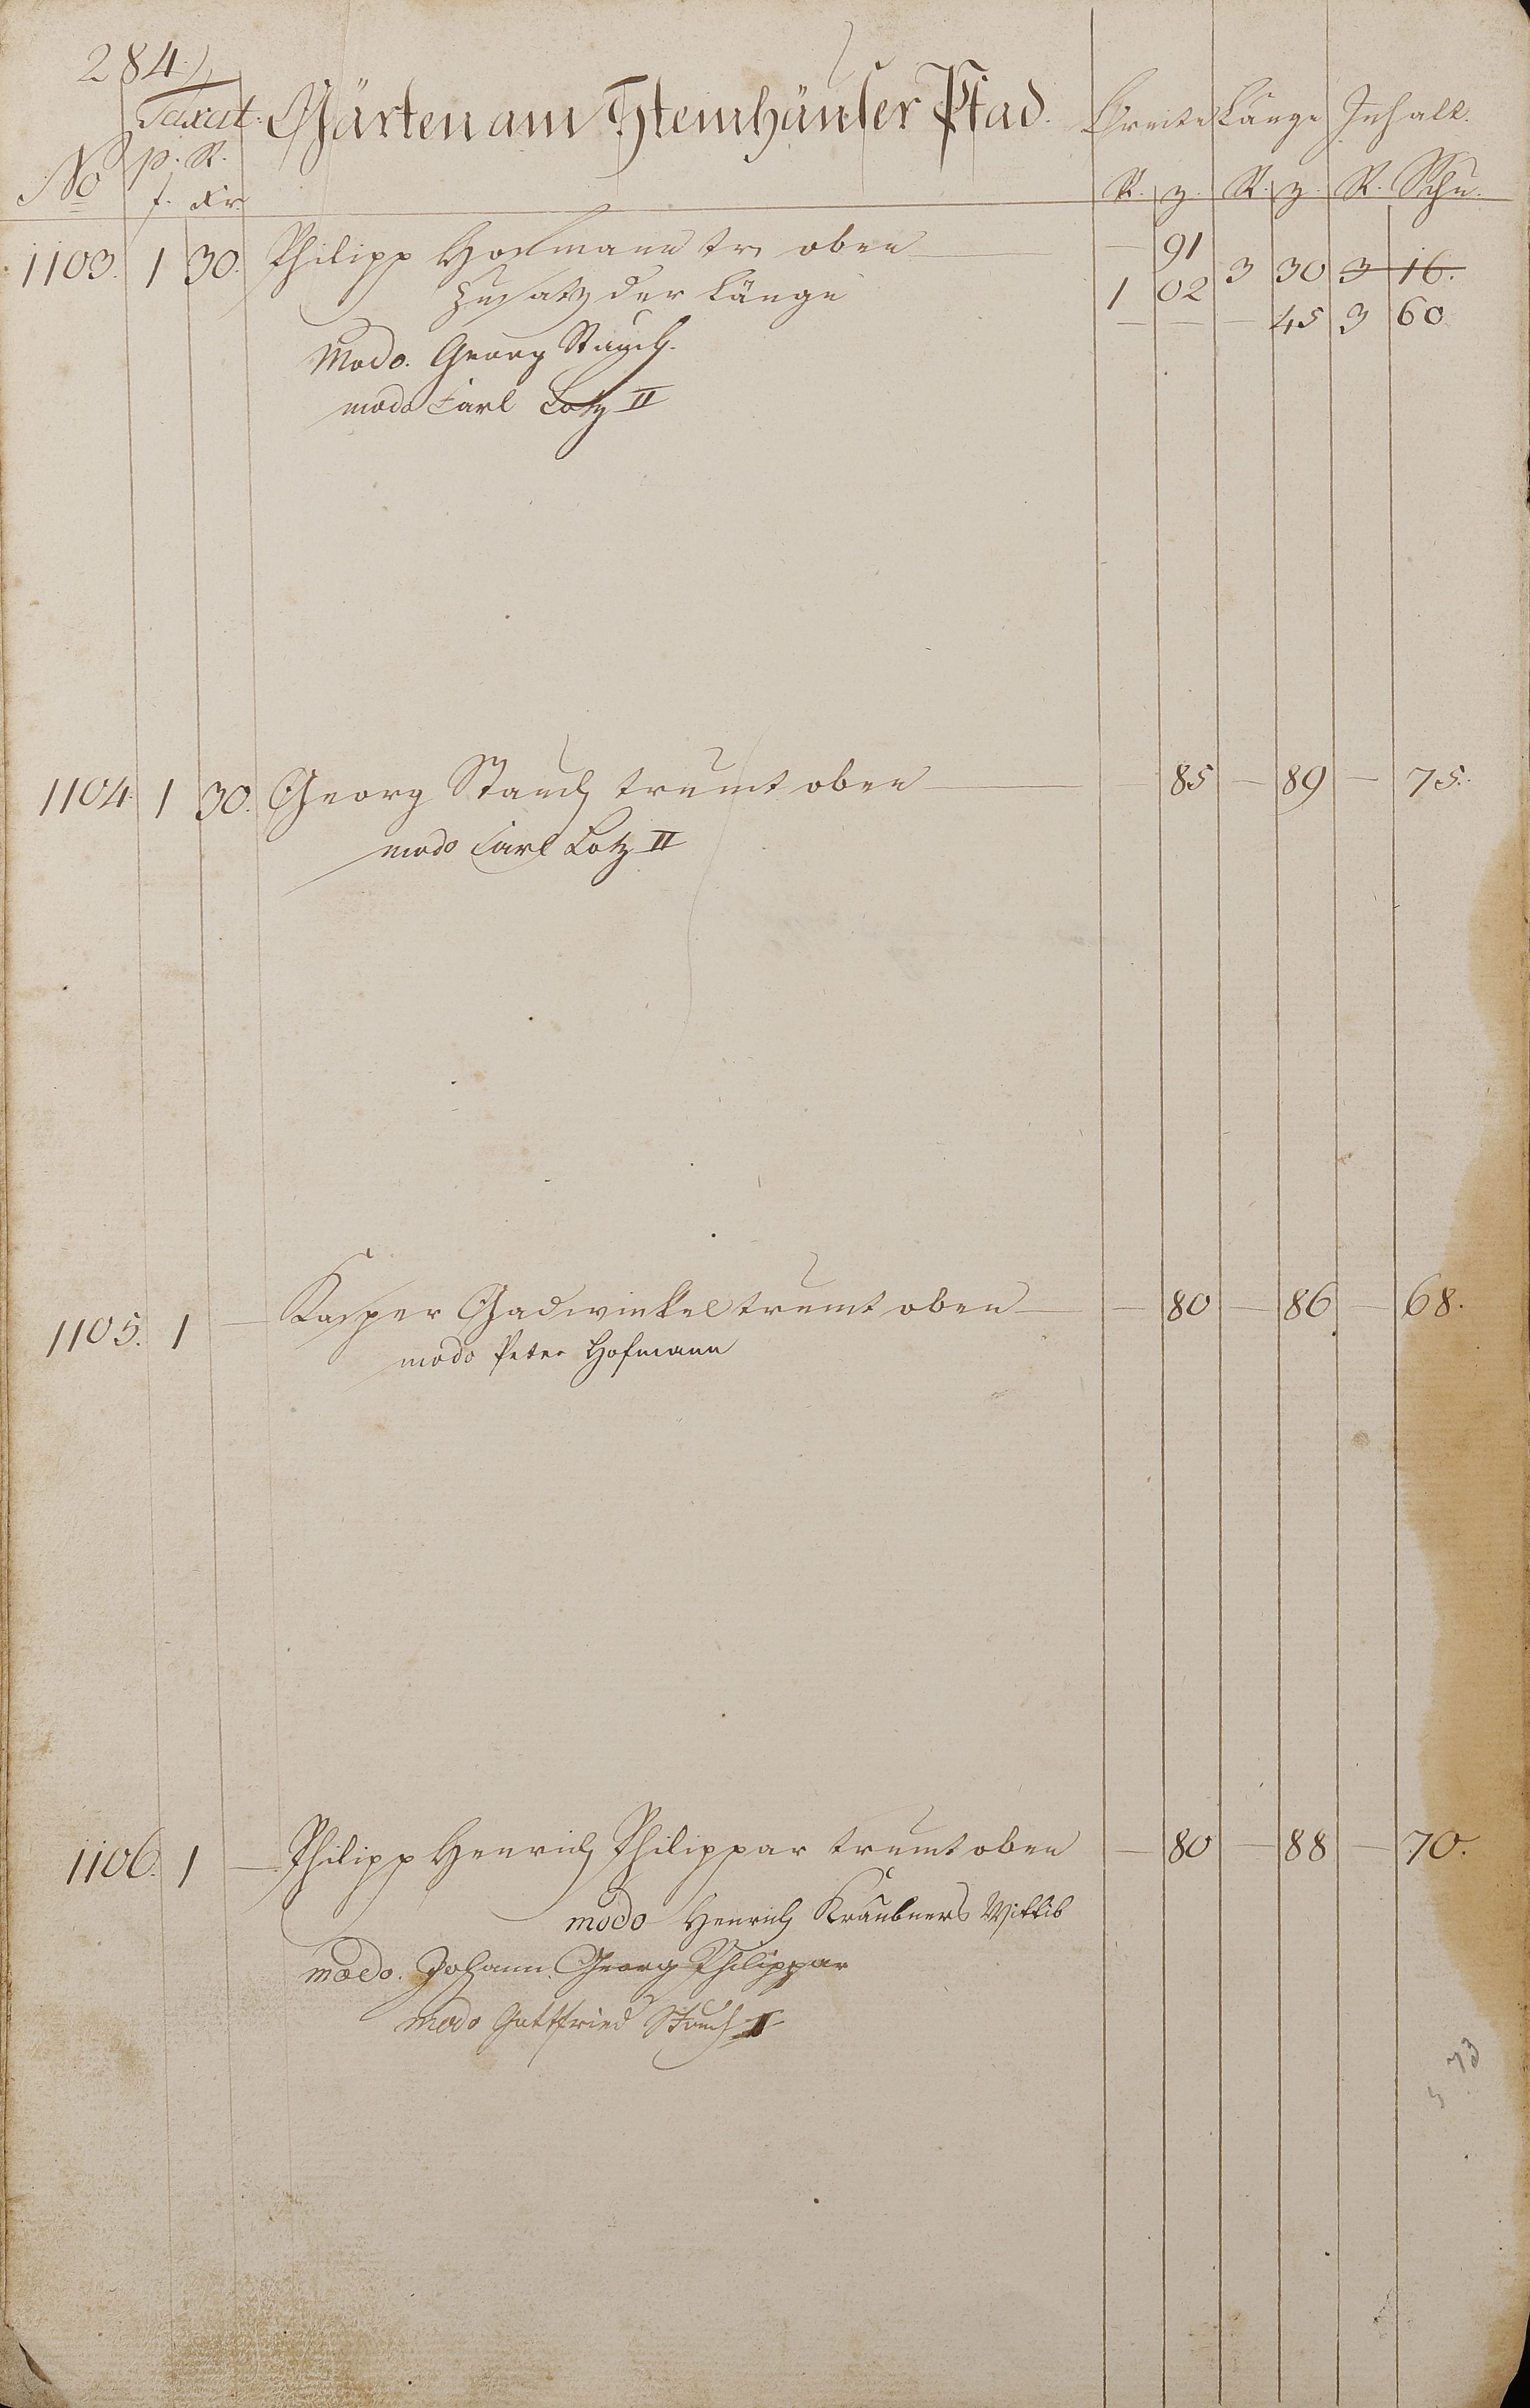 284.
Taxat. Gärten am Steinhäuser Pfad. Breite Länge Inhalt.
No p. R. f. Kr. R. z. R. z. R. Schu.
1103. 1 30. Philipp Hofmann tr. oben — 91
Zusatz der Länge 1 02 3 30 3 16.
— — — 45 3 60
Modo. Georg Stauch.
modo Carl Lotz II
1104 1 30. Georg Stauch trumt oben — 85 — 89 — 75.
modo Carl Lotz II
1105. 1 — Kasper Gadwinkel trumt oben — 80 — 86 — 68.
modo Peter Hofmann
1106. 1 — Philipp Henrich Philippar trumt oben — 80 — 88 — 70.
modo Henrich Kräubners Wittib
modo. Johann Georg Philippar
modo Gottfried Stauch II
73